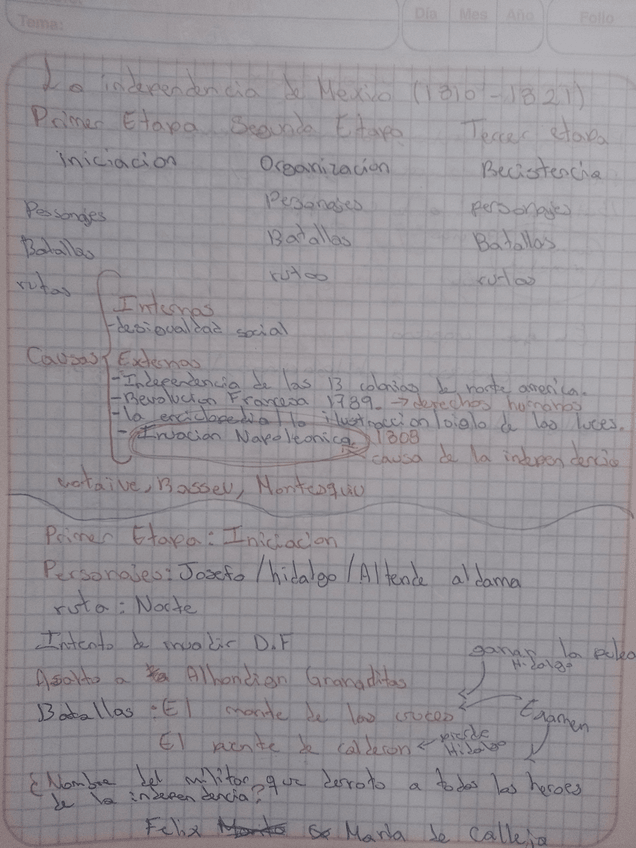 Tema:
Día Mes Año Folio
La independencia de Mexico (1810-1821)
Primer Etapa Segunda Etapa Tercer etapa
iniciacion Organizacion Recistencia
Personajes Personajes personajes
Batallas Batallas Batallas
rutas rutas rutas
Internas
-desigualdad social
Causas Externas
-Independencia de las 13 colonias de norte america.
-Revolucion Francesa 1789. → derechos humanos
-la enciclopedia/la ilustracion/siglo de las luces.
-Invacion Napoleonica 1808
causa de la independencia
votaive, Basseu, Montesquiu
Primer Etapa: Iniciacion
Personajes: Josefa/hidalgo/Allende aldama
ruta: Norte
Intento de invadir D.F
ganar la pelea
Hidalgo
Asalto a Alhondign Granaditas
Batallas: El monte de las cruces Examen
El puente de calderon ← pierde
Hidalgo
¿Nombre del militar que derroto a todos los heroes
de la independencia?
Felix Maria de Calleja